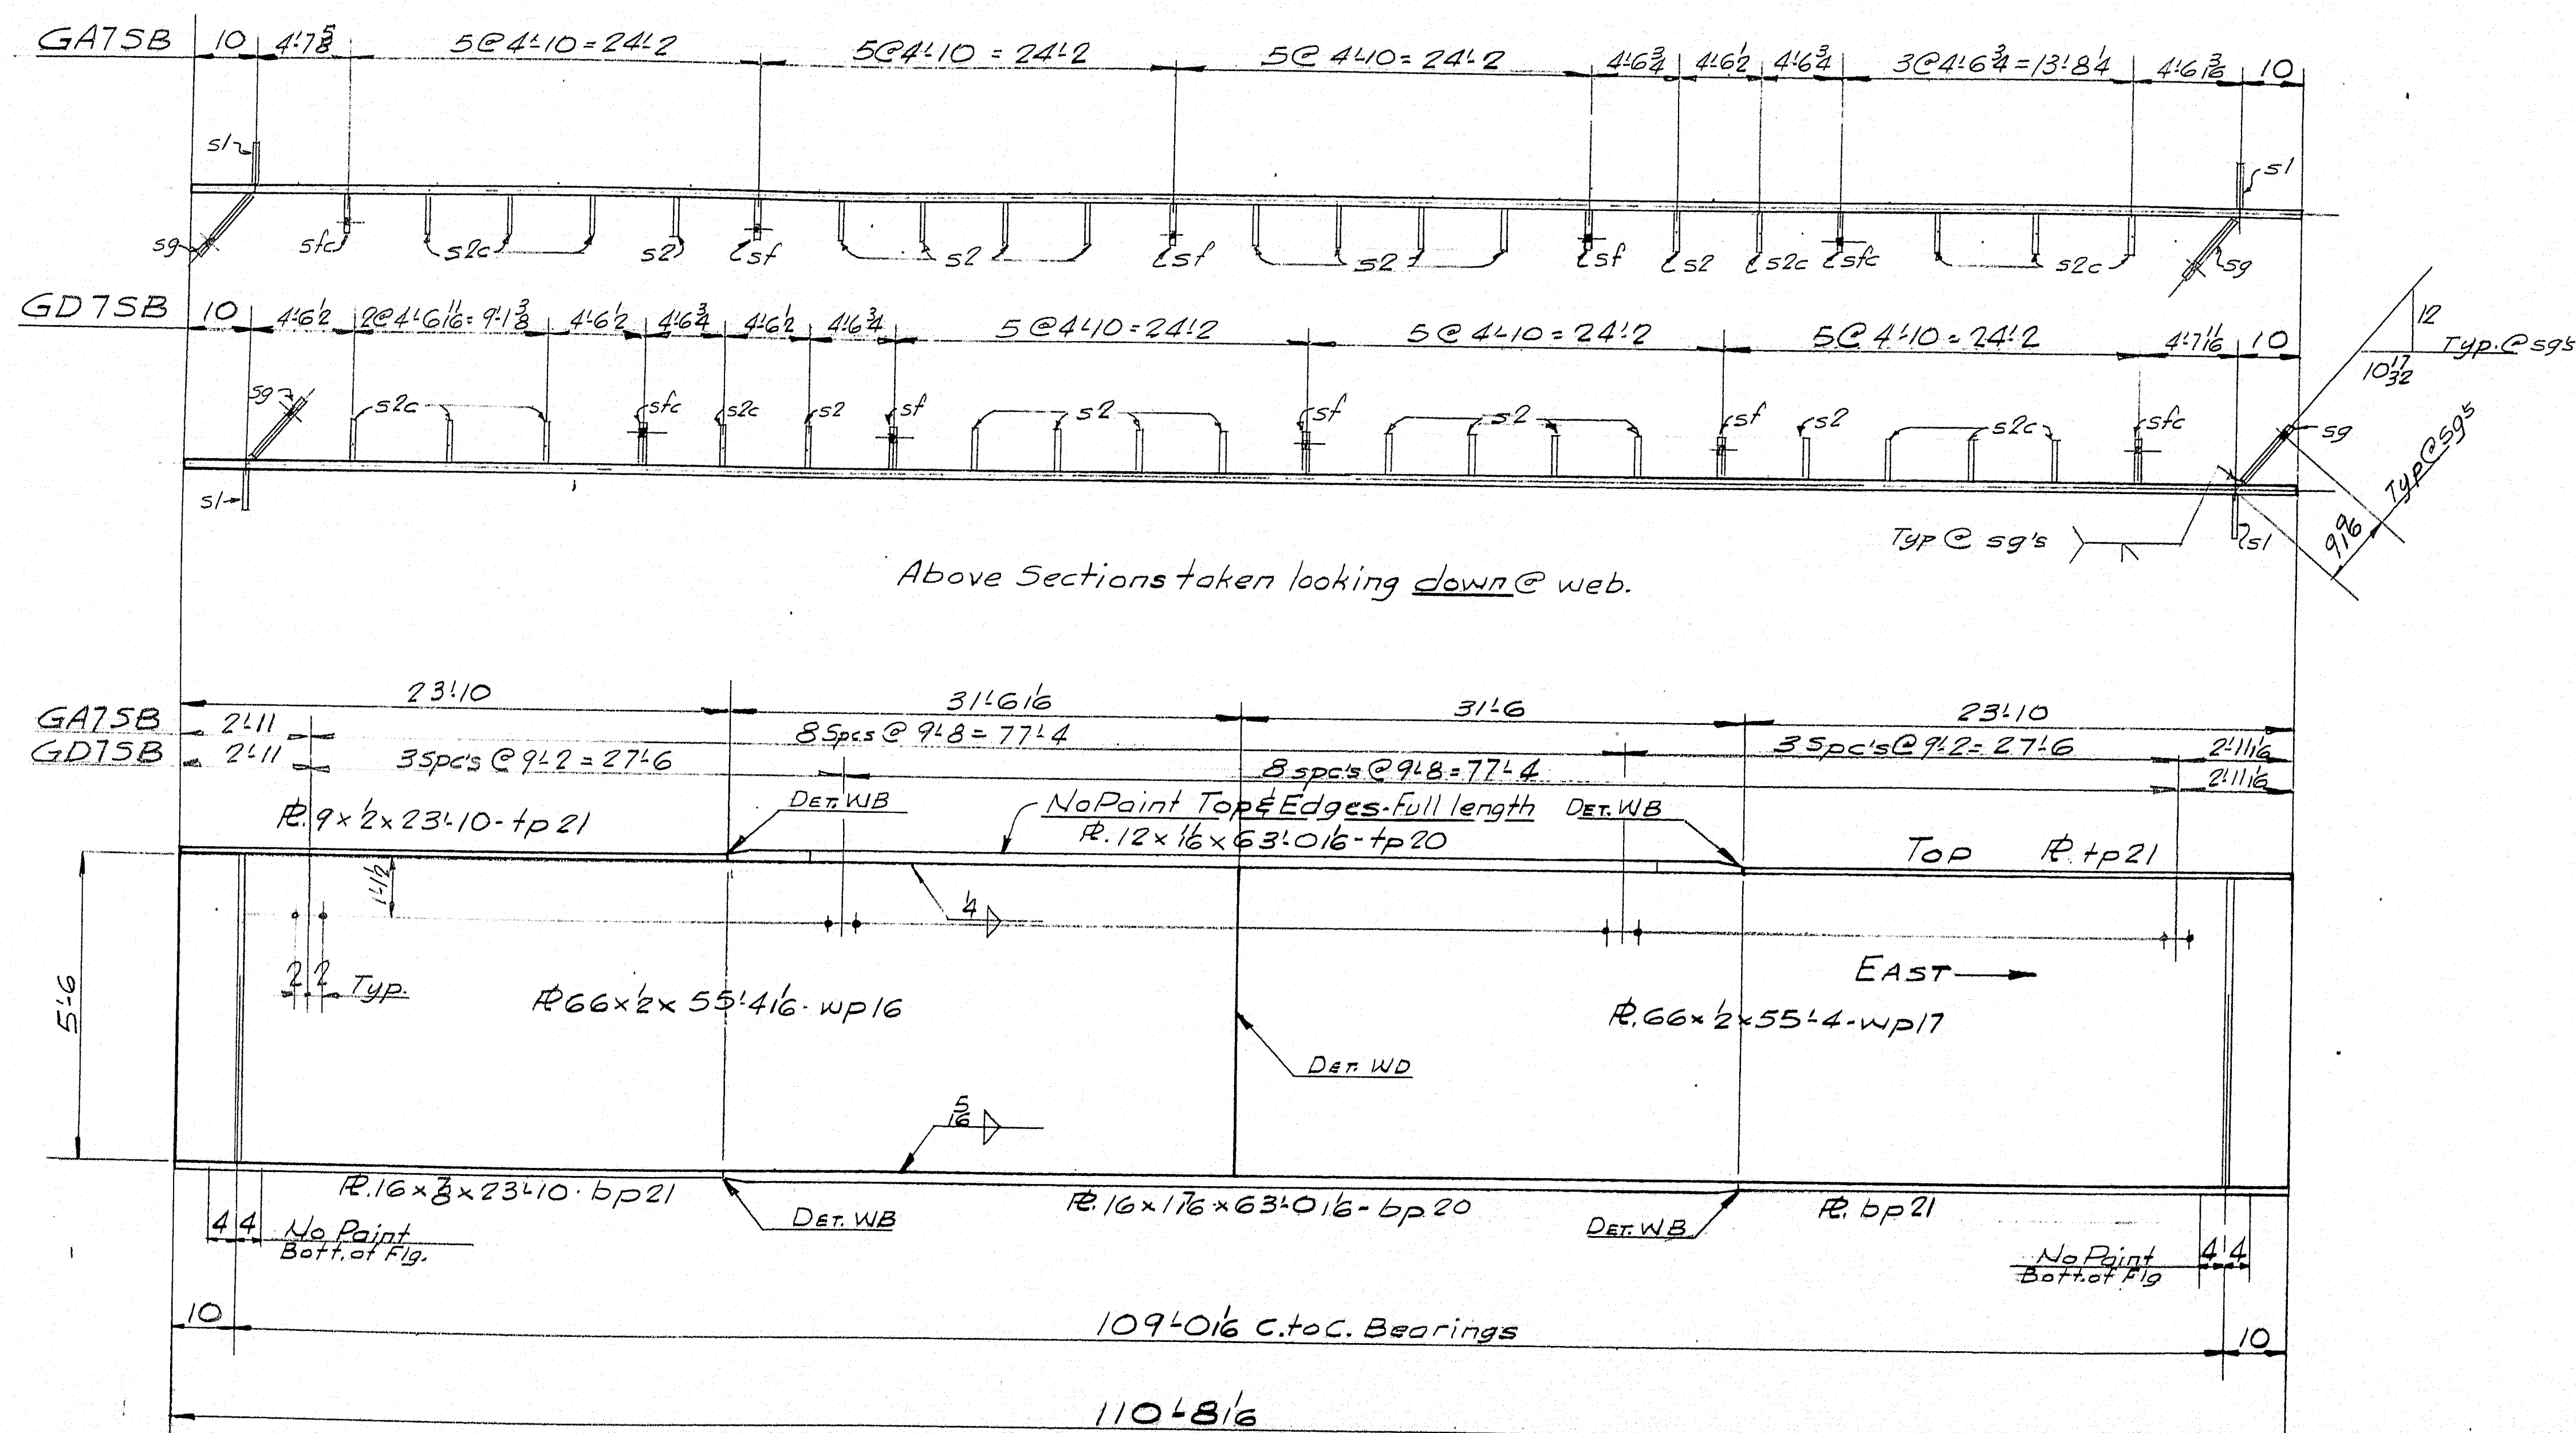 GA7SB 10 4'-7 5/8 5@4'-10=24'-2 5@4'-10 = 24'-2 5@ 4'-10= 24'-2 4'-6 3/4 4'-6 1/2 4'-6 3/4 3@4'-6 3/4=13'-8 1/4 4'-6 3/16 10
s1 s1
sg sfc s2c s2 sf s2 sf s2 sf s2 s2c sfc s2c sg
GD7SB 10 4'-6 1/2 2@4'-6 11/16=9'-1 3/8 4'-6 1/2 4'-6 3/4 4'-6 1/2 4'-6 3/4 5@4'-10=24'-2 5@4'-10=24'-2 5@4'-10=24'-2 4'-7 11/16 10
12
10 17/32 Typ.@sg's
sg s2c sfc s2c s2 sf s2 sf s2 sf s2 s2c sfc sg
Typ@sg's
9 9/16
s1 s1
Typ @ sg's
Above Sections taken looking down @ web.
23'-10 31'-6 1/16 31'-6 23'-10
GA7SB 2'-11 8 Spcs @ 9'-8 = 77'-4 3 Spc's@9'-2= 27'-6 2'-11 1/16
GD7SB 2'-11 3 Spc's @ 9'-2 = 27'-6 8 spc's@9'-8=77'-4 2'-11 1/16
DET. WB No Paint Top & Edges-Full length DET. WB
PL. 9 x 1/2 x 23'-10-tp21 PL. 12 x 1/16 x 63'-0 1/16-tp20 Top PL. tp21
1'-1 1/2
1/4
2 2 Typ.
EAST
5'-6
PL 66 x 1/2 x 55'-4 1/16-wp16 PL. 66 x 1/2 x 55'-4-wp17
DET. WD
5/16
PL. 16 x 7/8 x 23'-10-bp21 PL. 16 x 1 7/16 x 63'-0 1/16-bp20 PL. bp21
DET. WB DET. WB
4 4 No Paint
Bott. of Flg.
No Paint 4 4
Bott. of Flg
10 109'-0 1/16 C. to C. Bearings 10
110'-8 1/16